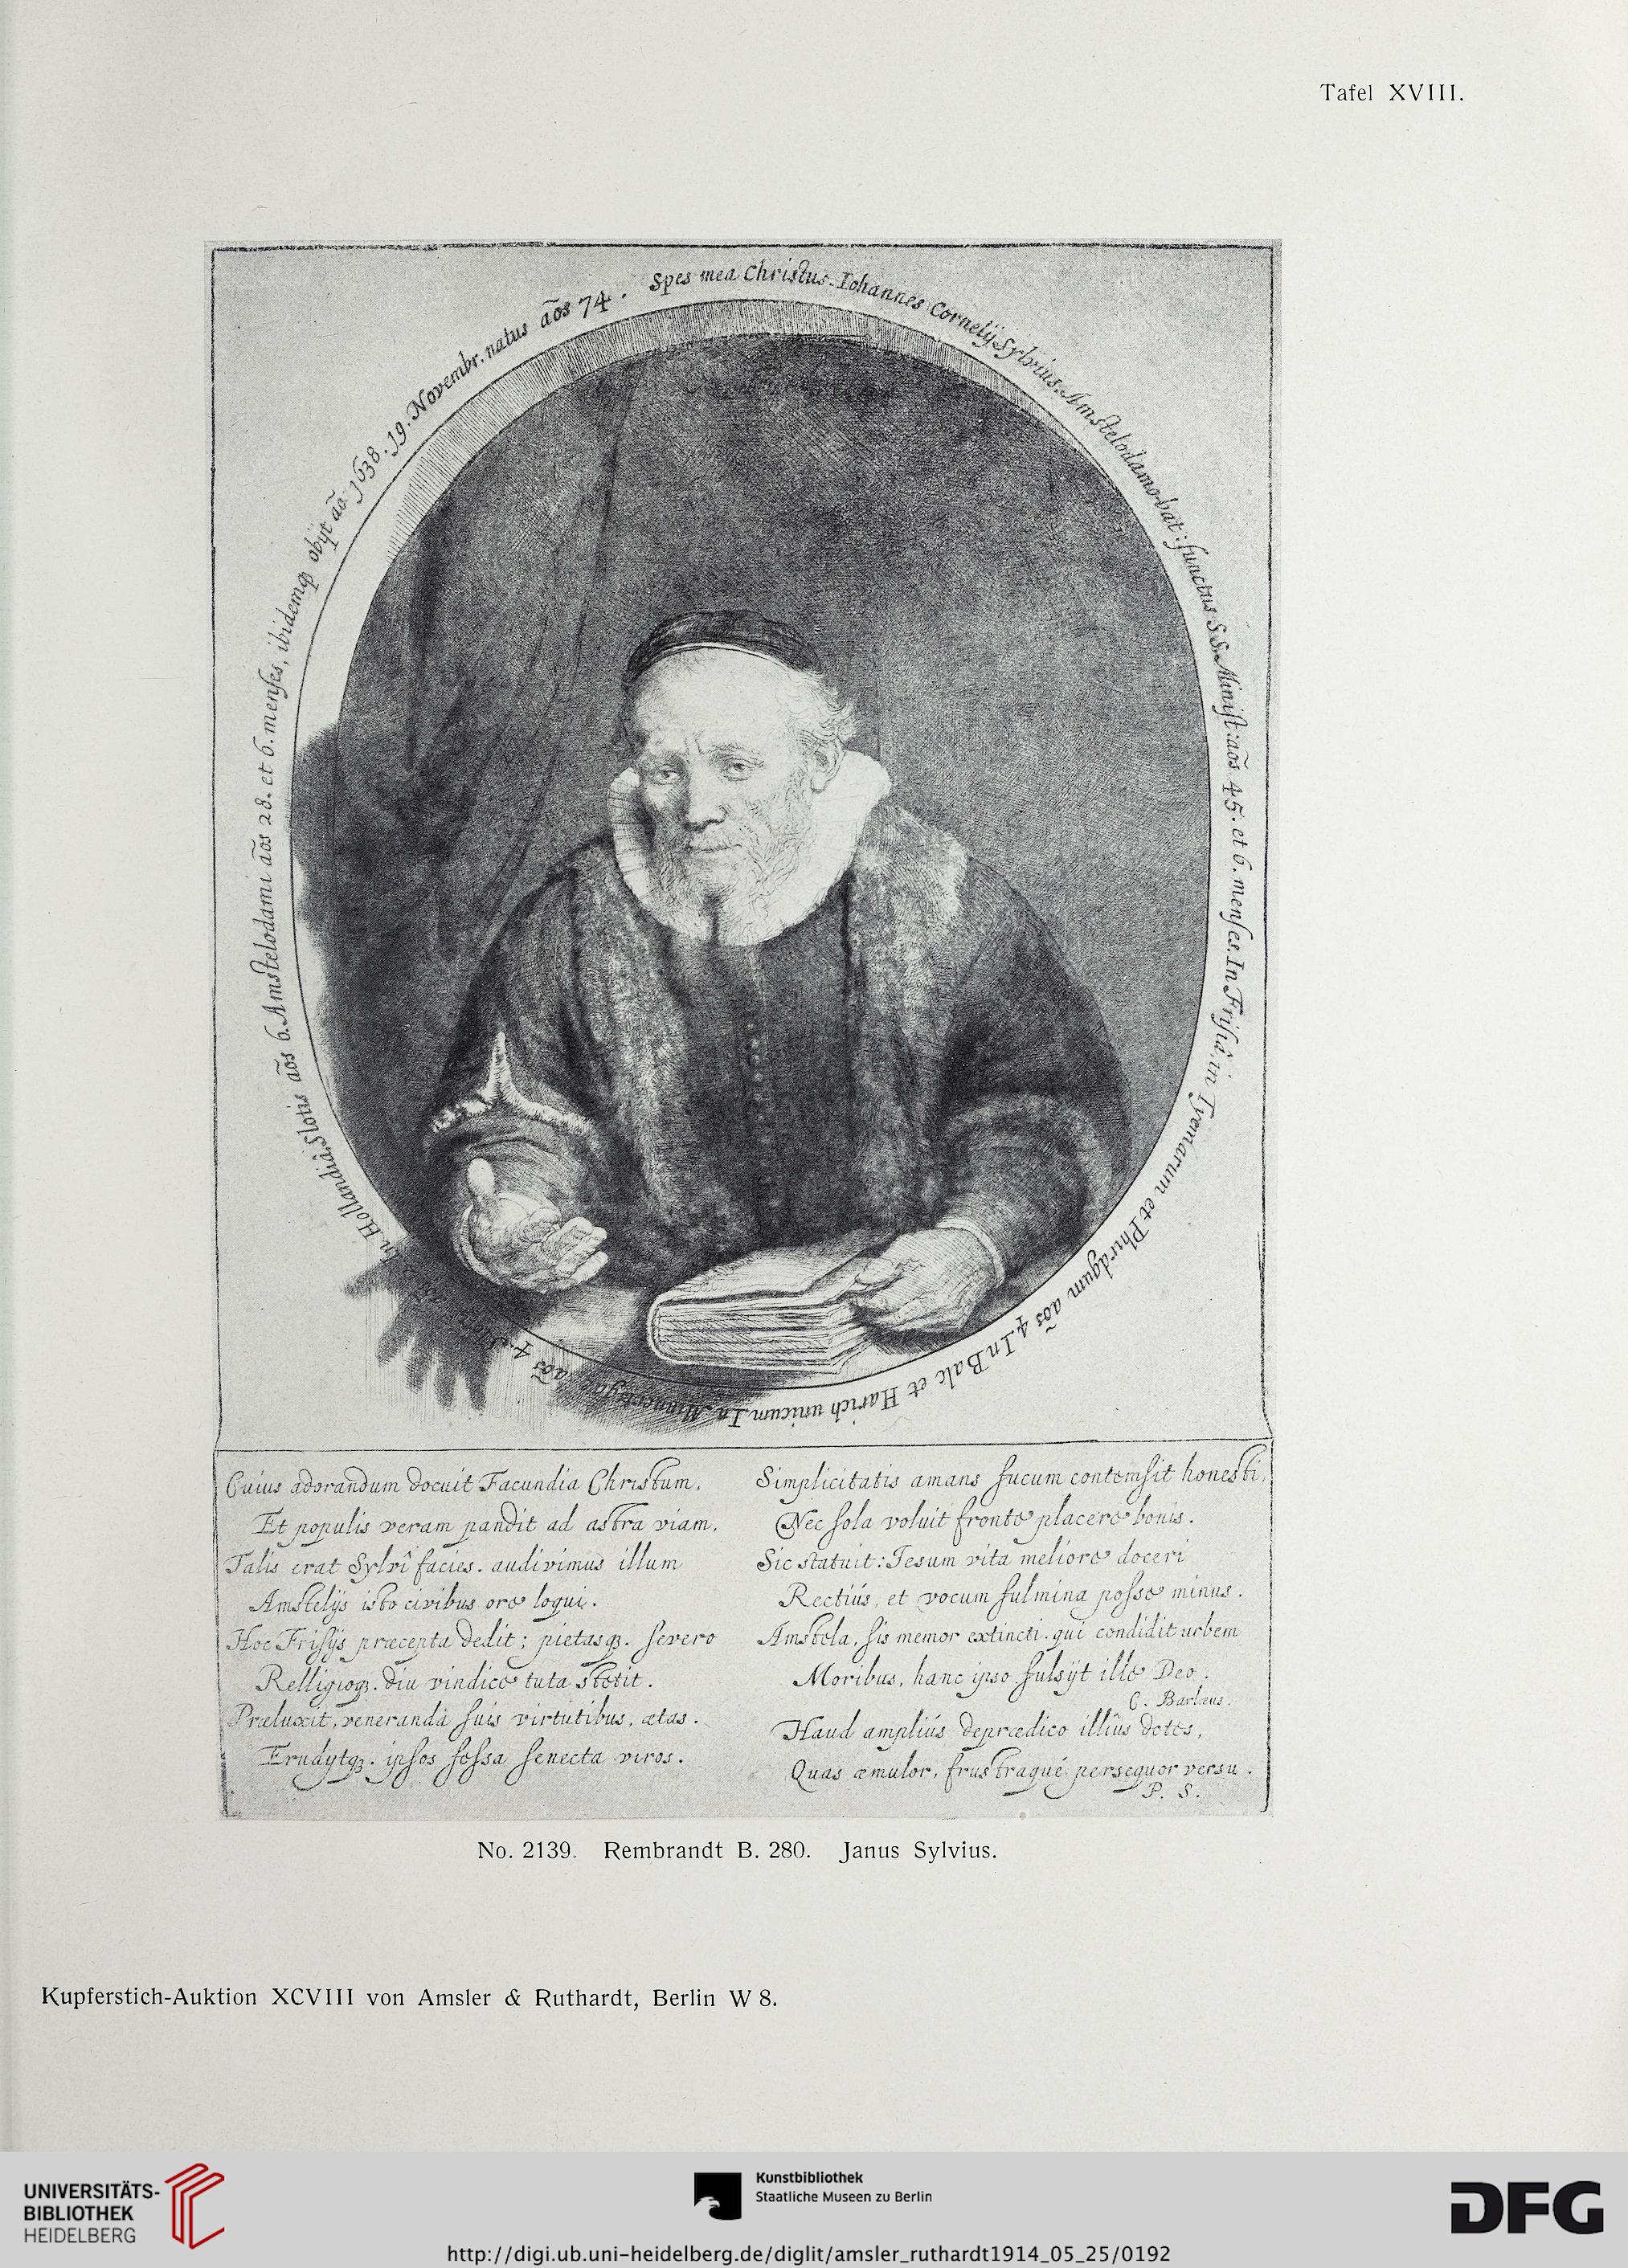 Tafel XVIII.
Spes mea Christus. Iohannes Cornelÿ Sylvius, Amstelodamo-bat: functus S.S. Minist: aõs 45. et 6. menses. In Frisiâ, in Tyemarum et Phirdgum aõs 4. In Balc et Harich unicum. In Minnertsga aõs 4. In Hollandiâ, Slotis aõs 6. Amstelodami aõs 28. et 6. menses, ibidemqȝ obÿt aõ. 1638. 19. Novembr. natus aõs 74.
Cuius adorandum docuit Facundia Christum,
Et populis veram pandit ad astra viam,
Talis erat Sylvî facies. audivimus illum
Amstelÿs isto civibus ore loqui.
Hoc Frisÿs præcepta dedit; pietasqȝ. severo
Relligioqȝ. diu vindice tuta stetit.
Præluxit, veneranda suis virtutibus, ætas.
Erudÿtqȝ. ipsos fessa senecta viros.
Simplicitatis amans fucum contemsit honesti,
Nec sola voluit fronte placere bonis.
Sic statuit: Iesum vita meliore doceri
Rectiús, et vocum fulmina posse minus.
Amstela, sis memor extincti. qui condidit urbem
Moribus, hanc ipso fulsÿt ille Deo.
C. Barlæus.
Haud ampliús deprædico illîus dotes,
Quas æmulor, frustraque persequor versu.
P. S.
No. 2139. Rembrandt B. 280. Janus Sylvius.
Kupferstich-Auktion XCVIII von Amsler & Ruthardt, Berlin W 8.
UNIVERSITÄTS-
BIBLIOTHEK
HEIDELBERG
Kunstbibliothek
Staatliche Museen zu Berlin
DFG
http://digi.ub.uni-heidelberg.de/diglit/amsler_ruthardt1914_05_25/0192